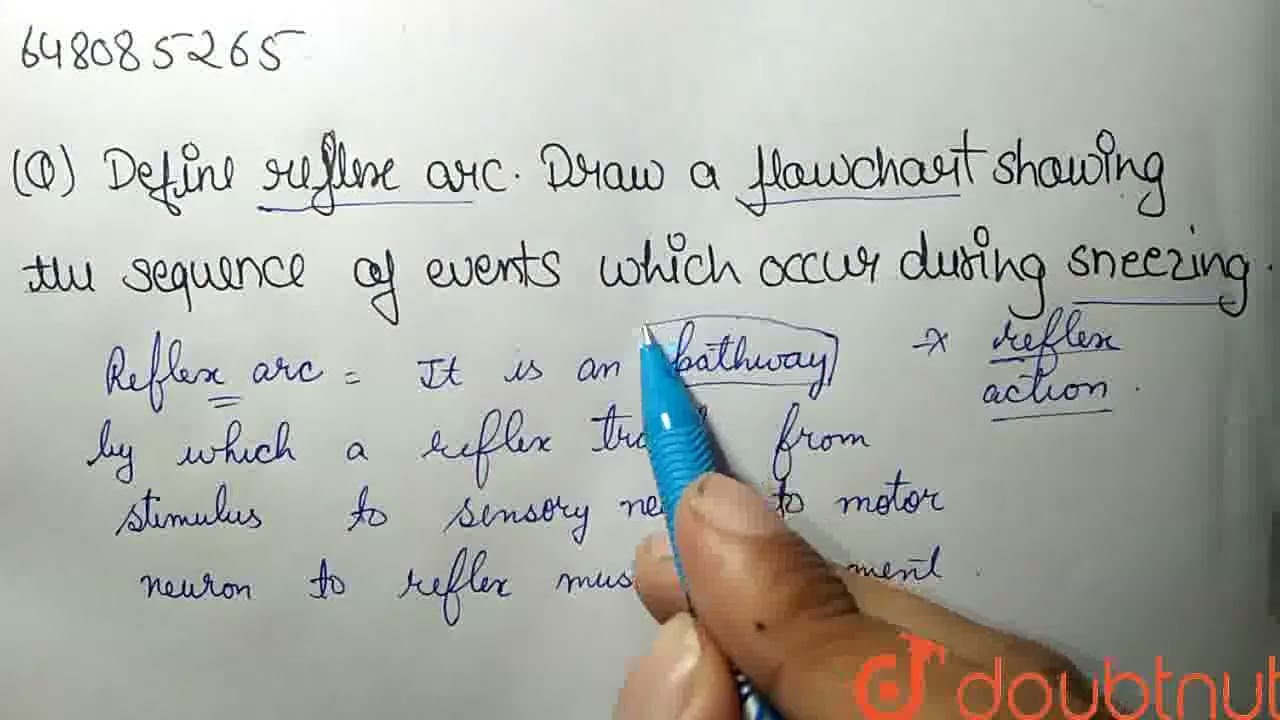 648085265
(Q) Define reflex arc. Draw a flowchart showing
the sequence of events which occur during sneezing.
Reflex arc = It is an pathway → reflex
action.
by which a reflex from
stimulus to sensory to motor
neuron to reflex
doubtnut